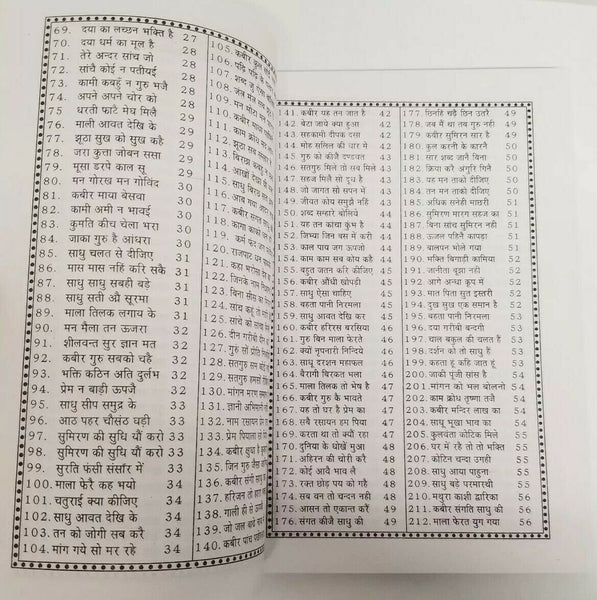 69. दया का लच्छन भक्ति है 27
70. दया धर्म का मूल है 28
71. तेरे अन्दर सांच जो 28
72. सांचै कोई न पतीयई 28
73. कामी कबहुँ न गुरु भजै 28
74. अपने अपने चोर को 28
75 धरती फाटै मेघ मिलै 28
76. माली आवत देखि के 29
77. झूठा सुख को सुख कहै 29
78. जरा कुत्ता जोबन ससा 29
79. मूसा डरपे काल सू 29
80. मन गोरख मन गोविंद 30
81. कबीर माया बेसवा 30
82. कामी अमी न भावई 30
83. कुमति कीच चेला भरा 30
84. जाका गुरु है आंधरा 30
85. साधु चलत से दीजिए 31
86. मास मास नहिं करि सकै 31
87. साधु साधु सबही बड़े 31
88. साधु सती औ सूरमा 31
89. माला तिलक लगाय के 31
90. मन मैला तन ऊजरा 32
91. शीलवन्त सुर ज्ञान मत 32
92. कबीर गुरु सबको चहै 32
93. भक्ति कठिन अति दुर्लभ 32
94. प्रेम न बाड़ी ऊपजै 32
95. साधु सीप समुद्र के 33
96. आठ पहर चौसंठ घड़ी 33
97. सुमिरण की सुधि यौं करो 33
98. सुमिरण की सुधि यौं करो 33
99. सुरति फंसी संसार में 33
100. माला फेरै कह भयो 34
101. चतुराई क्या कीजिए 34
102. साधु आवत देखि के 34
103. तन को जोगी सब करै 34
104. मांग गये सो मर रहे 34
105. कबीर कुल
106. पढ़ि पढ़ि के
107. शब्द
108. जल
109. मन
110. कबीर
111. काम क्रोध
112. झूठा सब
113. बिरछा कबहुँ
114. आखों
115. साधु बिरछ
116. आब गया
117. गुरु
118. कागा का को
119. कर्म फंद
120. राजपाट धन
121. कहा भरोसा
122. जिनके नाम
123. बिना सीस का
124. साधु कहूँ
125. सांचे को सांचा
126. दीन गरीबी
127. गुरु सों
128. सतगुरु
129. सतगुरु हमसों
130. मांगन मरण समान
131. ज्ञानी अभिमानी
132. नाम रसायन प्रेम
133. प्रेम पियाला सो
134. कबीर क्षुधा है
135. जिन गुरु जैसा
136. कबीर संगी साधु
137. हरिजन तो हारा
138. गाली ही से
139. जो जल बाढ़े
140. कबीर पांच
141. कबीर यह तन जात है 42
142. बेटा जाये क्या हुआ 42
143. सहकामी दीपक दसा 42
144. मोह सलिल की धार में 42
145. गुरु को कीजै दण्डवत 43
146. सतगुरु मिले तो सब मिले 43
147. सहज मिलै सो दूध है 43
148. जो जागत सो सपन में 43
149. जीवत कोय समुझै नहिं 43
150. शब्द सम्हारे बोलिये 44
151. यह तन कांचा कुंभ है 44
152. जिभ्या जिन बस में करी 44
153. काल पाय जग ऊपजो 44
154. काम काम सब कोय कहै 44
155. बहुत जतन करि कीजिए 45
156. कबीर औंधी खोपड़ी 45
157. साधु ऐसा चाहिए 45
158. बहता पानी निरमला 45
159. साधु आवत देखि कर 45
160. कबीर हरिरस बरसिया 46
161. गुरु बिन माला फेरते 46
162. क्यों नृपनारी निन्दिये 46
163. साधु दरशन महाफल 46
164. बैरागी बिरकत भला 46
165. माला तिलक तो भेष है 47
166. कबीर गुरु कै भावते 47
167. यह तो घर है प्रेम का 47
168. सबै रसायन हम पिया 47
169. करता था तो क्यों रहा 47
170. दुनिया के धोखे मुआ 48
171. अहिरन की चोरी करै 48
172. कोई आवै भाव लै 48
173. रक्त छोड़ पय को गहै 48
174. सब वन तो चन्दन नही 48
175. आसन तो एकान्त करैं 49
176. संगत कीजै साधु की 49
177. छिनहि चढ़ै छिन उतरै 49
178. जब मैं था तब गुरु नही 49
179. कबीर सुमिरन सार है 49
180. कुल करनी के कारनै 50
181. सार शब्द जाने बिना 50
182. क्रिया करै अंगुरि गिनै 50
183. यह मन ताको दीजिए 50
184. तन मन ताको दीजिए 50
185. अधिक सनेही माछरी 51
186. सुमिरण मारग सहज का 51
187. बिना सांच सुमिरन नही 51
188. ऊजल पहिनै कापड़ा 51
189. बालपन भोले गया 51
190. भक्ति बिगाड़ी कामिया 52
191. जानीता बूझा नही 52
192. आगे अन्धा कूप में 52
193. मात पिता सुत इस्तरी 52
194. दुख सुख एक समान है 52
195. बहता पानी निरमला 53
196. दया गरीबी बन्दगी 53
197. चाल बकुल की चलत हैं 53
198. दर्शन को तो साधु हैं 53
199. कहता हूं कहि जात हूं 53
200. जाकी पूंजी सांस है 54
201. मांगन को भल बोलनो 54
202. काम क्रोध तृष्णा तजै 54
203. कबीर मन्दिर लाख का 54
204. साधु भूखा भाव का 54
205. कुलवंता कोटिक मिले 55
206. घर में रहै तो भक्ति 55
207. कोटिन चन्दा उगही 55
208. साधु आया पाहुना 55
209. साधु बड़े परमारथी 55
210. मथुरा काशी द्वारिका 56
211. कबीर संगति साधु की 56
212. माला फेरत युग गया 56